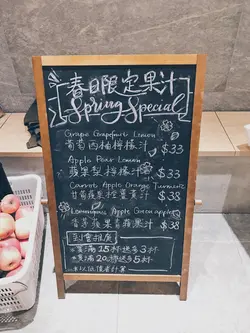 春日限定果汁
Spring Special
Grape Grapefruit Lemon
葡萄西柚檸檬汁 $33
Apple Pear Lemon
蘋果梨檸檬汁 $33
Carrot Apple Orange Turmeric
甘筍蘋果橙薑黃汁 $38
Lemongrass Apple Green apple
香茅蘋果青蘋果汁 $38
買滿15杯送多3杯
買滿20杯送多5杯